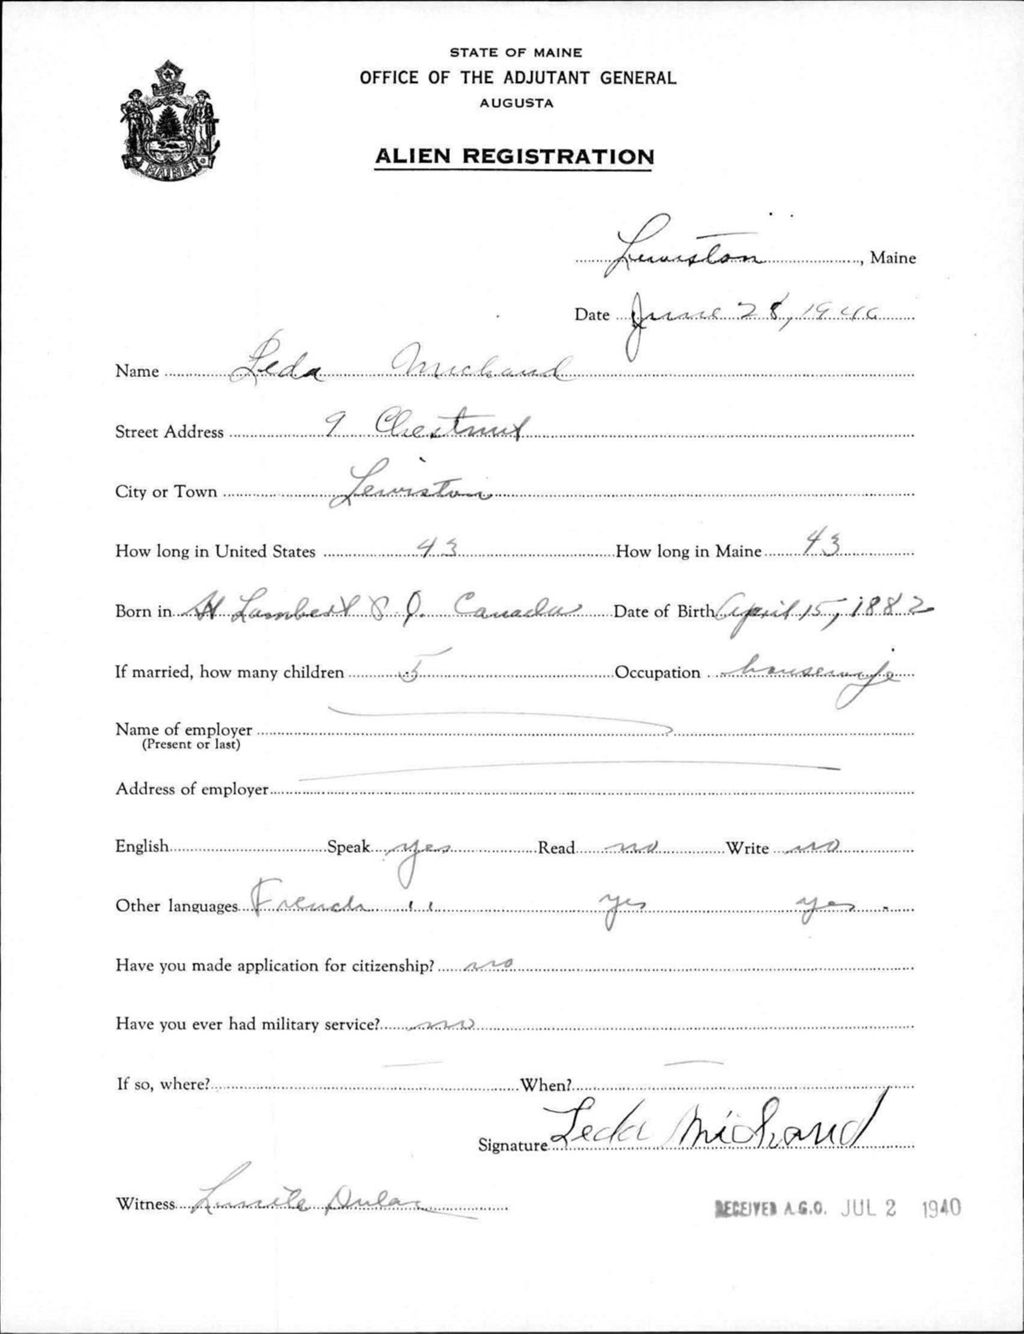 STATE OF MAINE
OFFICE OF THE ADJUTANT GENERAL
AUGUSTA
ALIEN REGISTRATION
MAINE
Lewiston, Maine
Date June 28, 1940
Name Leda Michaud
Street Address 9 Chestnut
City or Town Lewiston
How long in United States 43 How long in Maine 43
Born in St Lambert P. Q. Canada Date of Birth April 15, 1882
If married, how many children 5 Occupation housewife
Name of employer
(Present or last)
Address of employer
English Speak yes Read no Write no
Other languages French " yes yes
Have you made application for citizenship? no
Have you ever had military service? no
If so, where? When?
Signature Leda Michaud
Witness Lucile Dulac
RECEIVED A.G.O. JUL 2 1940